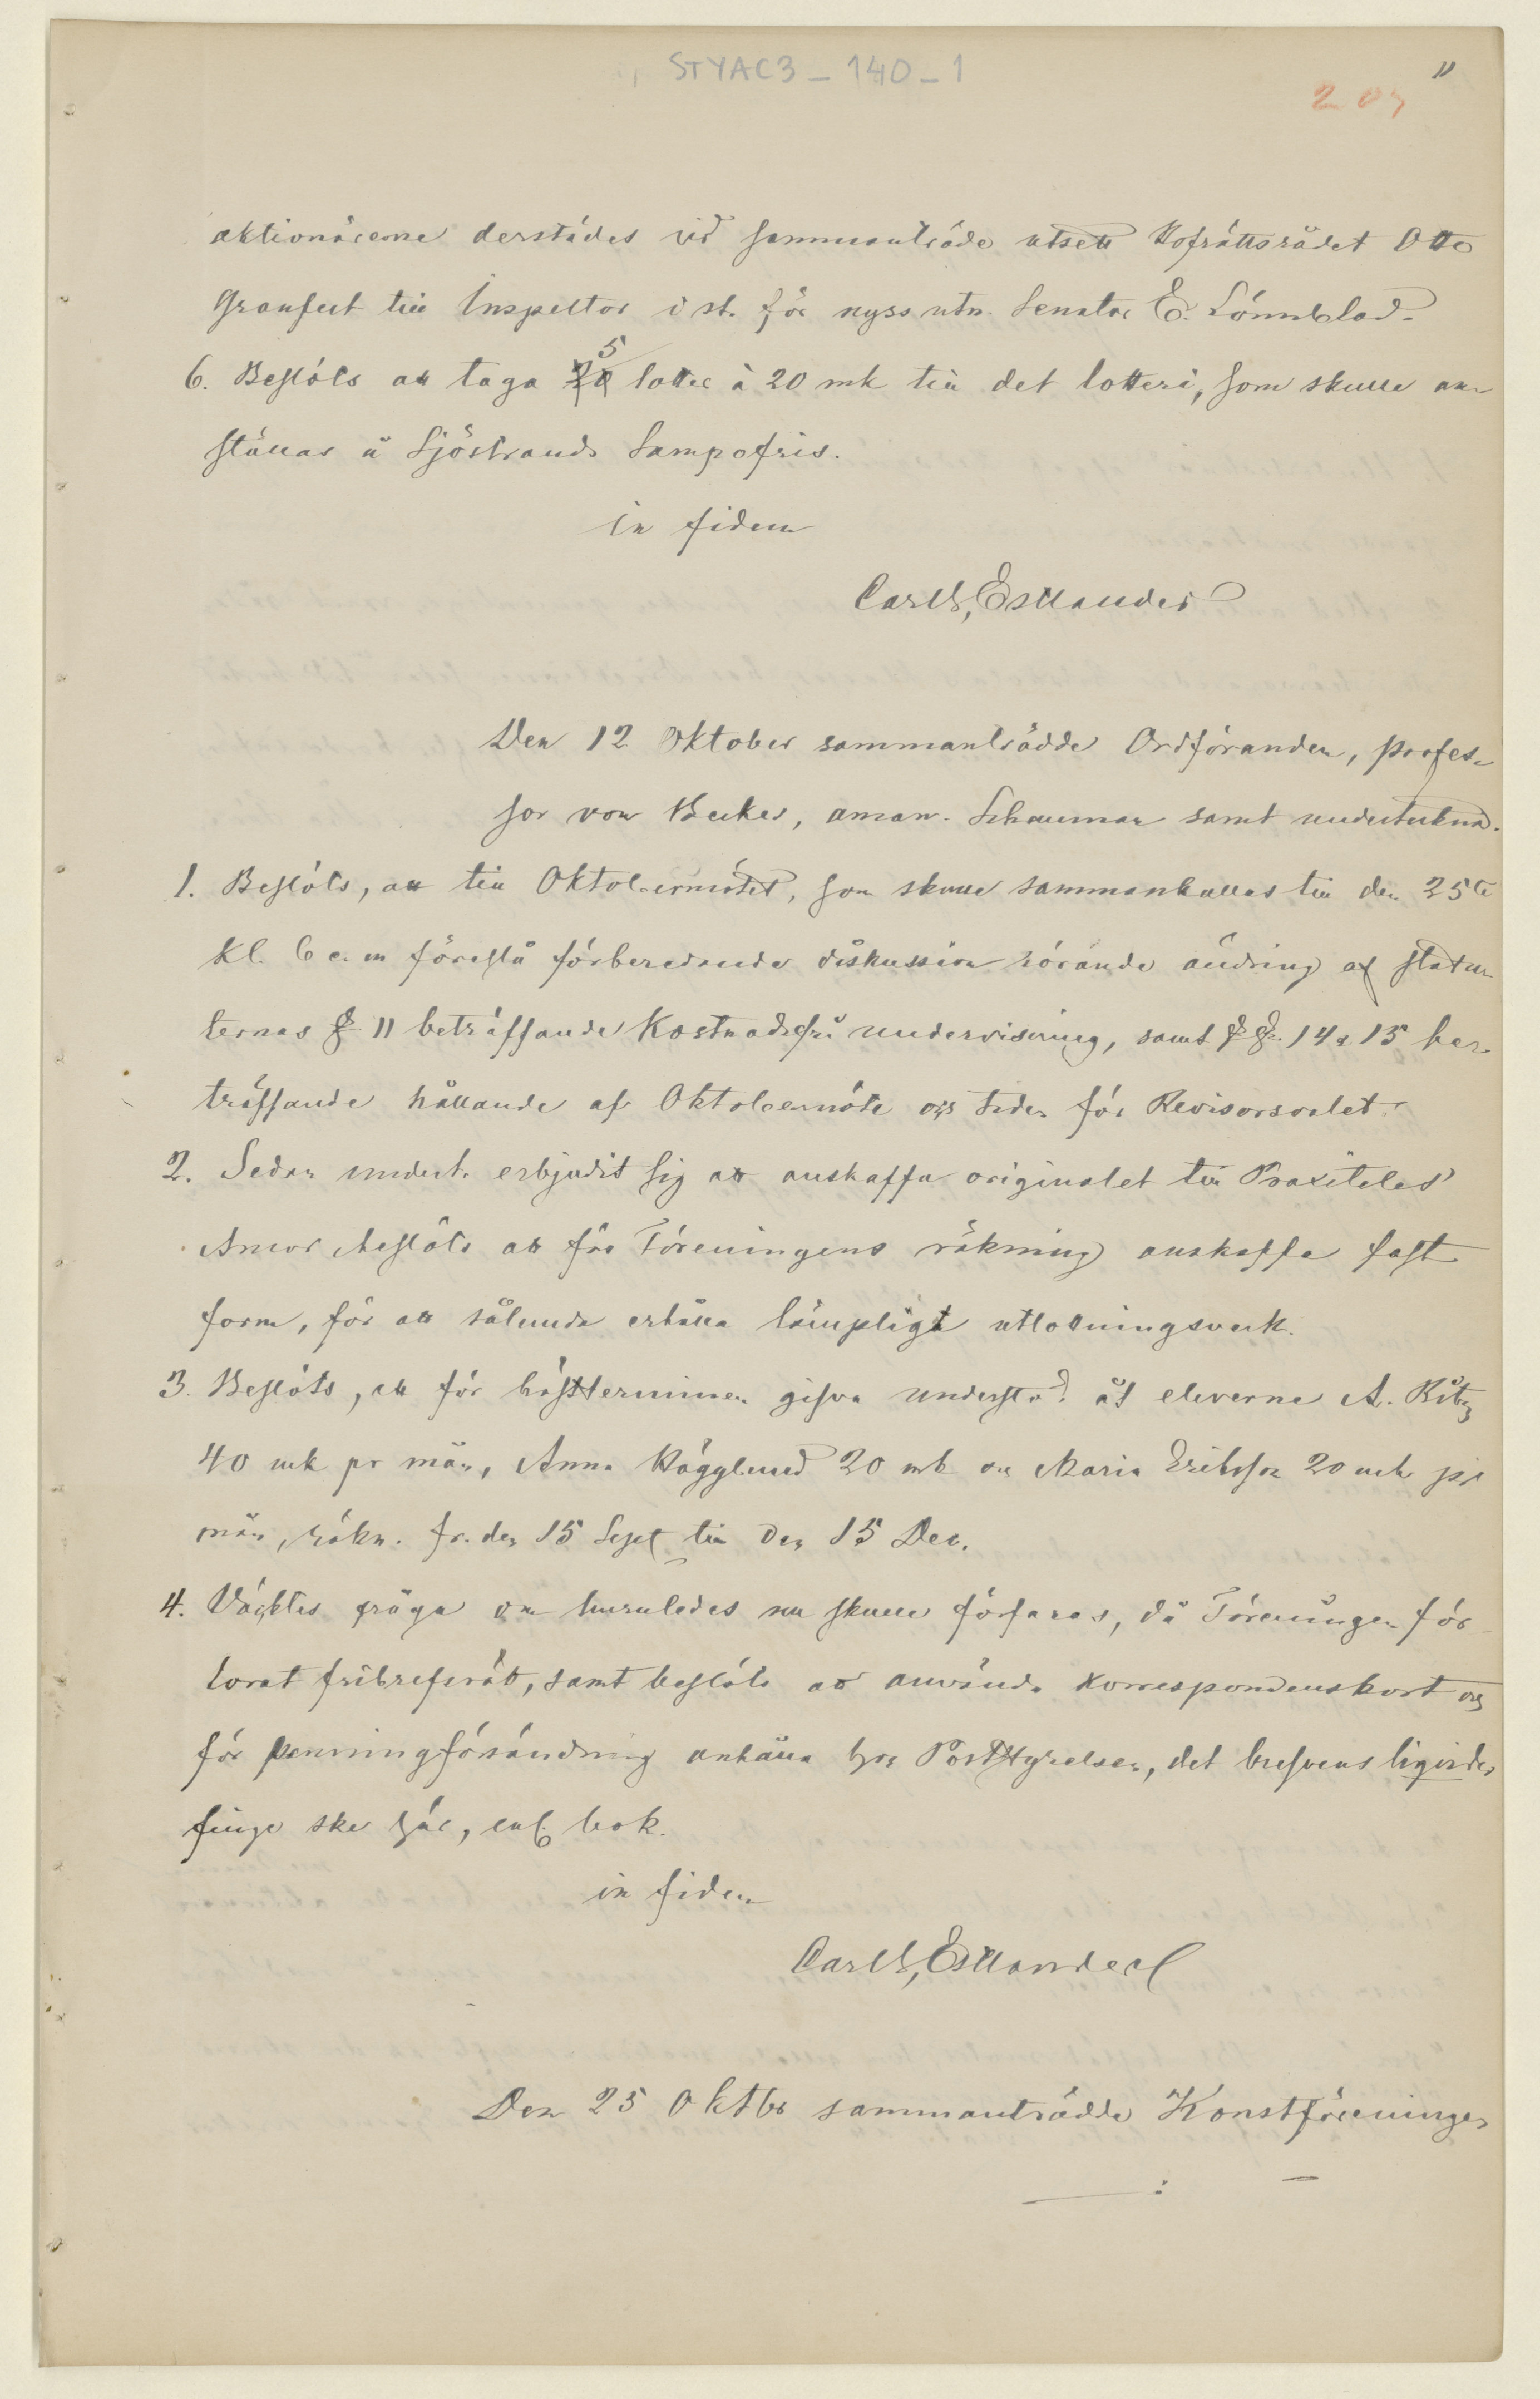 STYAC3_140_1
11
207
aktionärerne derstädes vid sammanträde utsett Hofrättsrådet Otto
Granfelt till Inspektor i st. för nyss utn. Senator E. Lönnblad.
5
6. Beslöts att taga 20 lotter à 20 mk till det lotteri, som skulle an-
ställas å Sjöstrands Sampofris.
in fidem
Carl G. Estlander
Den 12 Oktober sammanträdde Ordföranden, profes-
sor von Becker, aman. Schauman samt undertecknad.
1. Beslöts, att till Oktobermötet, som skulle sammankallas till den 25te
Kl. 6 e. m föreslå förberedande diskussion rörande ändring af statu-
ternas § 11 beträffande Kostnadsfri undervisning, samt §§ 14 & 15 be-
träffande hållande af Oktobermöte och tiden för Revisorsvalet.
2. Sedan undert. erbjudit sig att anskaffa originalet till Praxiteles'
Amor beslöts att för Föreningens räkning anskaffa fast
form, för att sålunda erhålla lämpligt utlottningsverk.
3. Beslöts, att för höstterminen gifva understöd åt eleverna A.
40 mk pr mån, Anna Hägglund 20 mk och Maria Eriksson 20 mk pr
mån, räkn. fr. den 15 Sept till den 15 Dec.
4. Väcktes fråga om huruledes nu skulle förfaras, då Föreningen för-
lorat fribrefsrätt, samt beslöts att använda Korrespondenskort och
för penningförsändning anhålla hos Poststyrelsen, det brefvens
finge ske här, enl. bok.
in fidem
Carl G. Estlander
Den 25 Oktbr sammanträdde Konstföreningen